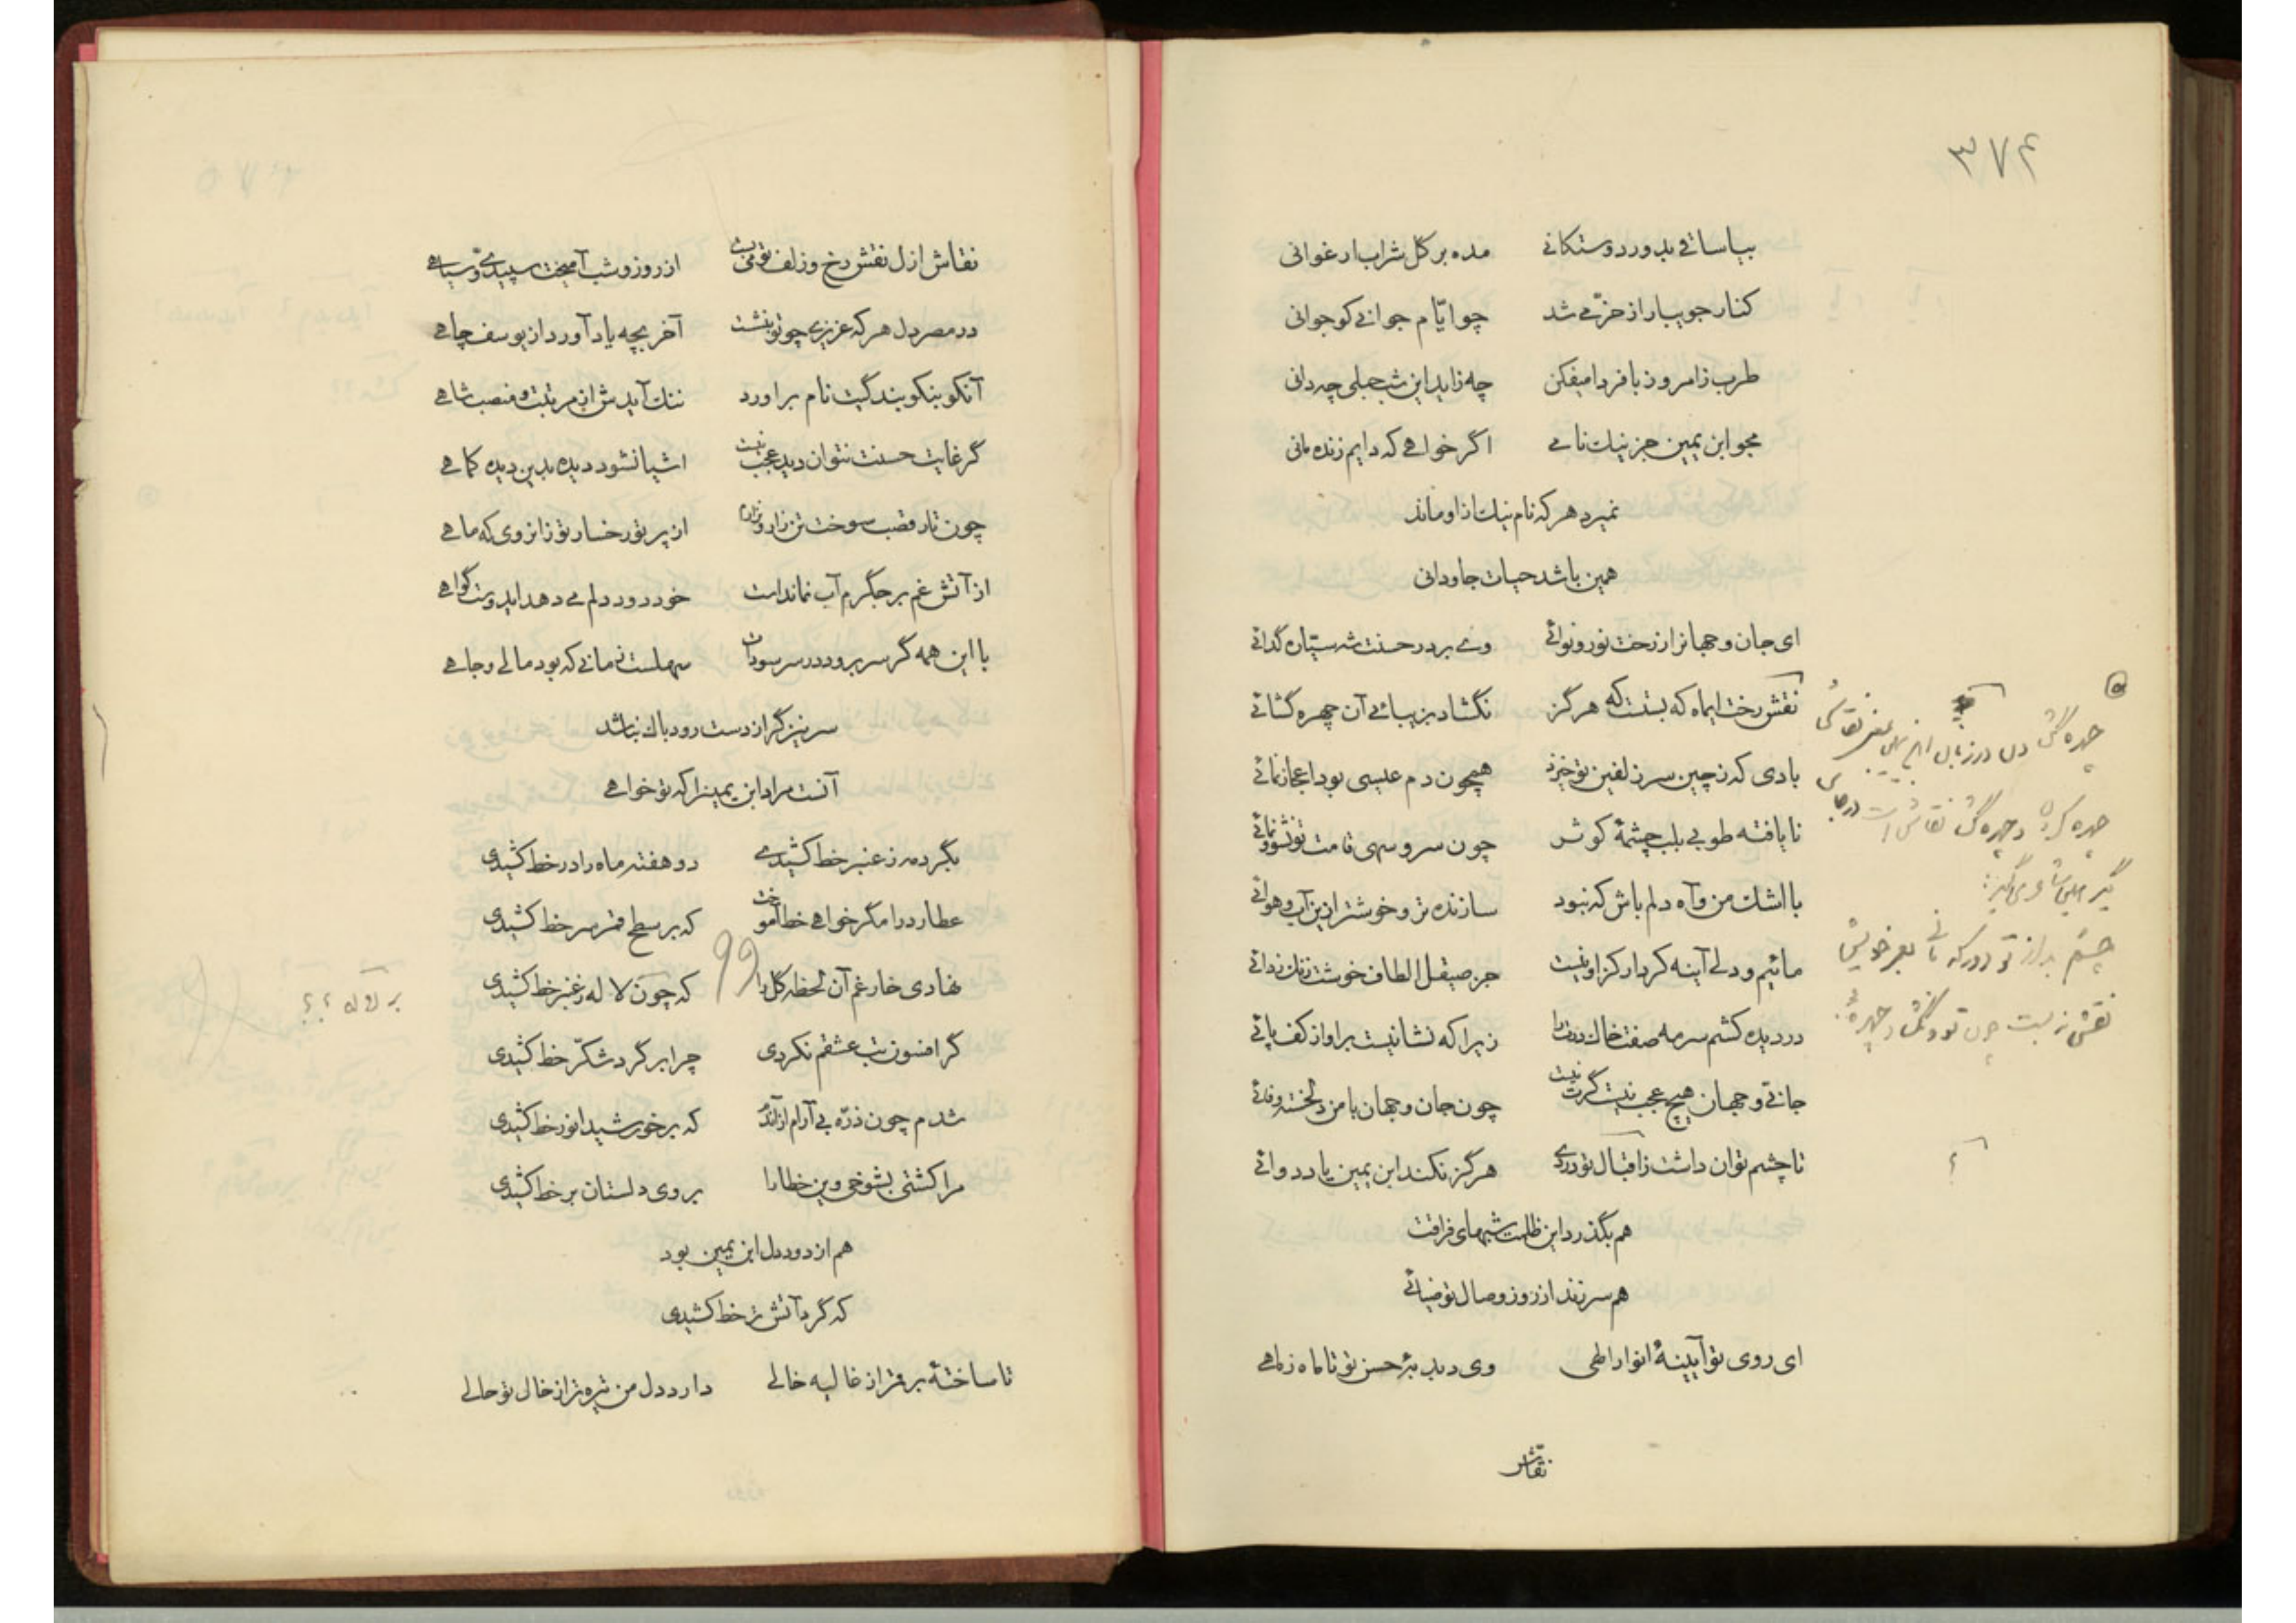 ۳۷۴
بیا ساقی بده در دوستکانی مده بر گل شراب ارغوانی
کنار جویبار از خرّمی شد چو ایّام جوانی کو جوانی
طرب ز امروز با فردا میفکن چه زاید این شب حبلی چه دانی
مجو ابن یمین جز نیک نامی اگر خواهی که دایم زنده مانی
نمیرد هر که نام نیک ازو ماند
همین باشد حیات جاودانی
ای جان و جهانرا ز رخت نور و نوائی وی بر در حسنت شه سیّاره گدائی
نقش رخت ایماه که بستت که هرگز نگشاد بزیبائی آن چهره گشائی
بادی که ز چین سر زلفین تو خیزد همچون دم عیسی بود اعجاز نمائی
نا یافته طوبی بلب چشمهٔ کوثر چون سرو سهی قامت تو نشو و نمائی
با اشک من و آه دلم باش که نبود سازنده تر و خوشتر ازین آب و هوائی
مائیم و دلی آینه کردار کزاو نیست جز صیقل الطاف خوشت زنگ زدائی
در دیده کشم سرمه صفت خاک درت را زیرا که نشانیست بر او از کف پائی
جانی و جهان هیچ عجب نیست گرت نیست چون جان و جهان با من دلخسته وفائی
تا چشم توان داشت ز اقبال تو دردی هرگز نکند ابن یمین یاد دوائی
هم بگذرد این ظلمت شبهای فراقت
هم سر زند از روز وصال تو ضیائی
ای روی تو آیینهٔ انوار الهی وی دبدبهٔ حسن تو تا ماه ز ماهی
نقّاش
چهره گشی در زبان نقاشی
چهره گشا نقاش است
چشم بد از تو دور که مانی بعمر خویش
نقشی نبست چون تو و نگشاد چهرهٔ
؟
نقاش ازل نقش رخ و زلف تو می‌بست از روز و شب آمیخت سپیدی و سیاهی
در مصر دل هر که عزیزی چو تو بنشست آخر بچه یاد آورد از یوسف چاهی
آنکو بنکو بندگیت نام براورد ننگ آیدش از مرتبت و منصب شاهی
گر غایت حسنت نتوان دید عجب نیست اشیا نشود دیده بدین دیده کماهی
چون تار قصب سوخت تن زار و نزارم از پرتو رخسار تو زانروی که ماهی
از آتش غم بر جگرم آب نماندست خود درد دلم می دهد ایدوست گواهی
با این همه گر سر برود در سر سودات سهلست زمانی که بود مالی و جاهی
سر نیز گر از دست رود باک نباشد
آنست مراد ابن یمینرا که تو خواهی
بگرد مه ز عنبر خط کشیدی دو هفته ماه را در خط کشیدی
عطارد را مگر خواهی خط آموخت که بر سطح قمر سر خط کشیدی
نهادی خار غم آن لحظه گل را که چون لاله ز عنبر خط کشیدی
گر افسون تب عشقم نکردی چرا بر گرد شکّر خط کشیدی
شدم چون ذرّه بی آرام از آندم که بر خورشید انور خط کشیدی
مرا کشتی بشوخی وین خطا را بروی دلستان بر خط کشیدی
هم از دود دل ابن یمین بود
که گرد آتش تر خط کشیدی
تا ساختهٔ بر قمر از غالیه خالی دارد دل من تیره تر از خال تو حالی
بر لاله ؟؟